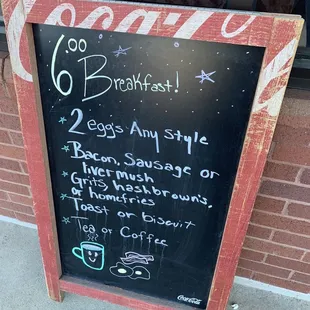 Coca-Cola
6.00 Breakfast!
2 eggs Any style
Bacon, Sausage or
livermush
Grits, hashbrown's,
or homefries
Toast or biscuit
Tea or Coffee
Coca-Cola